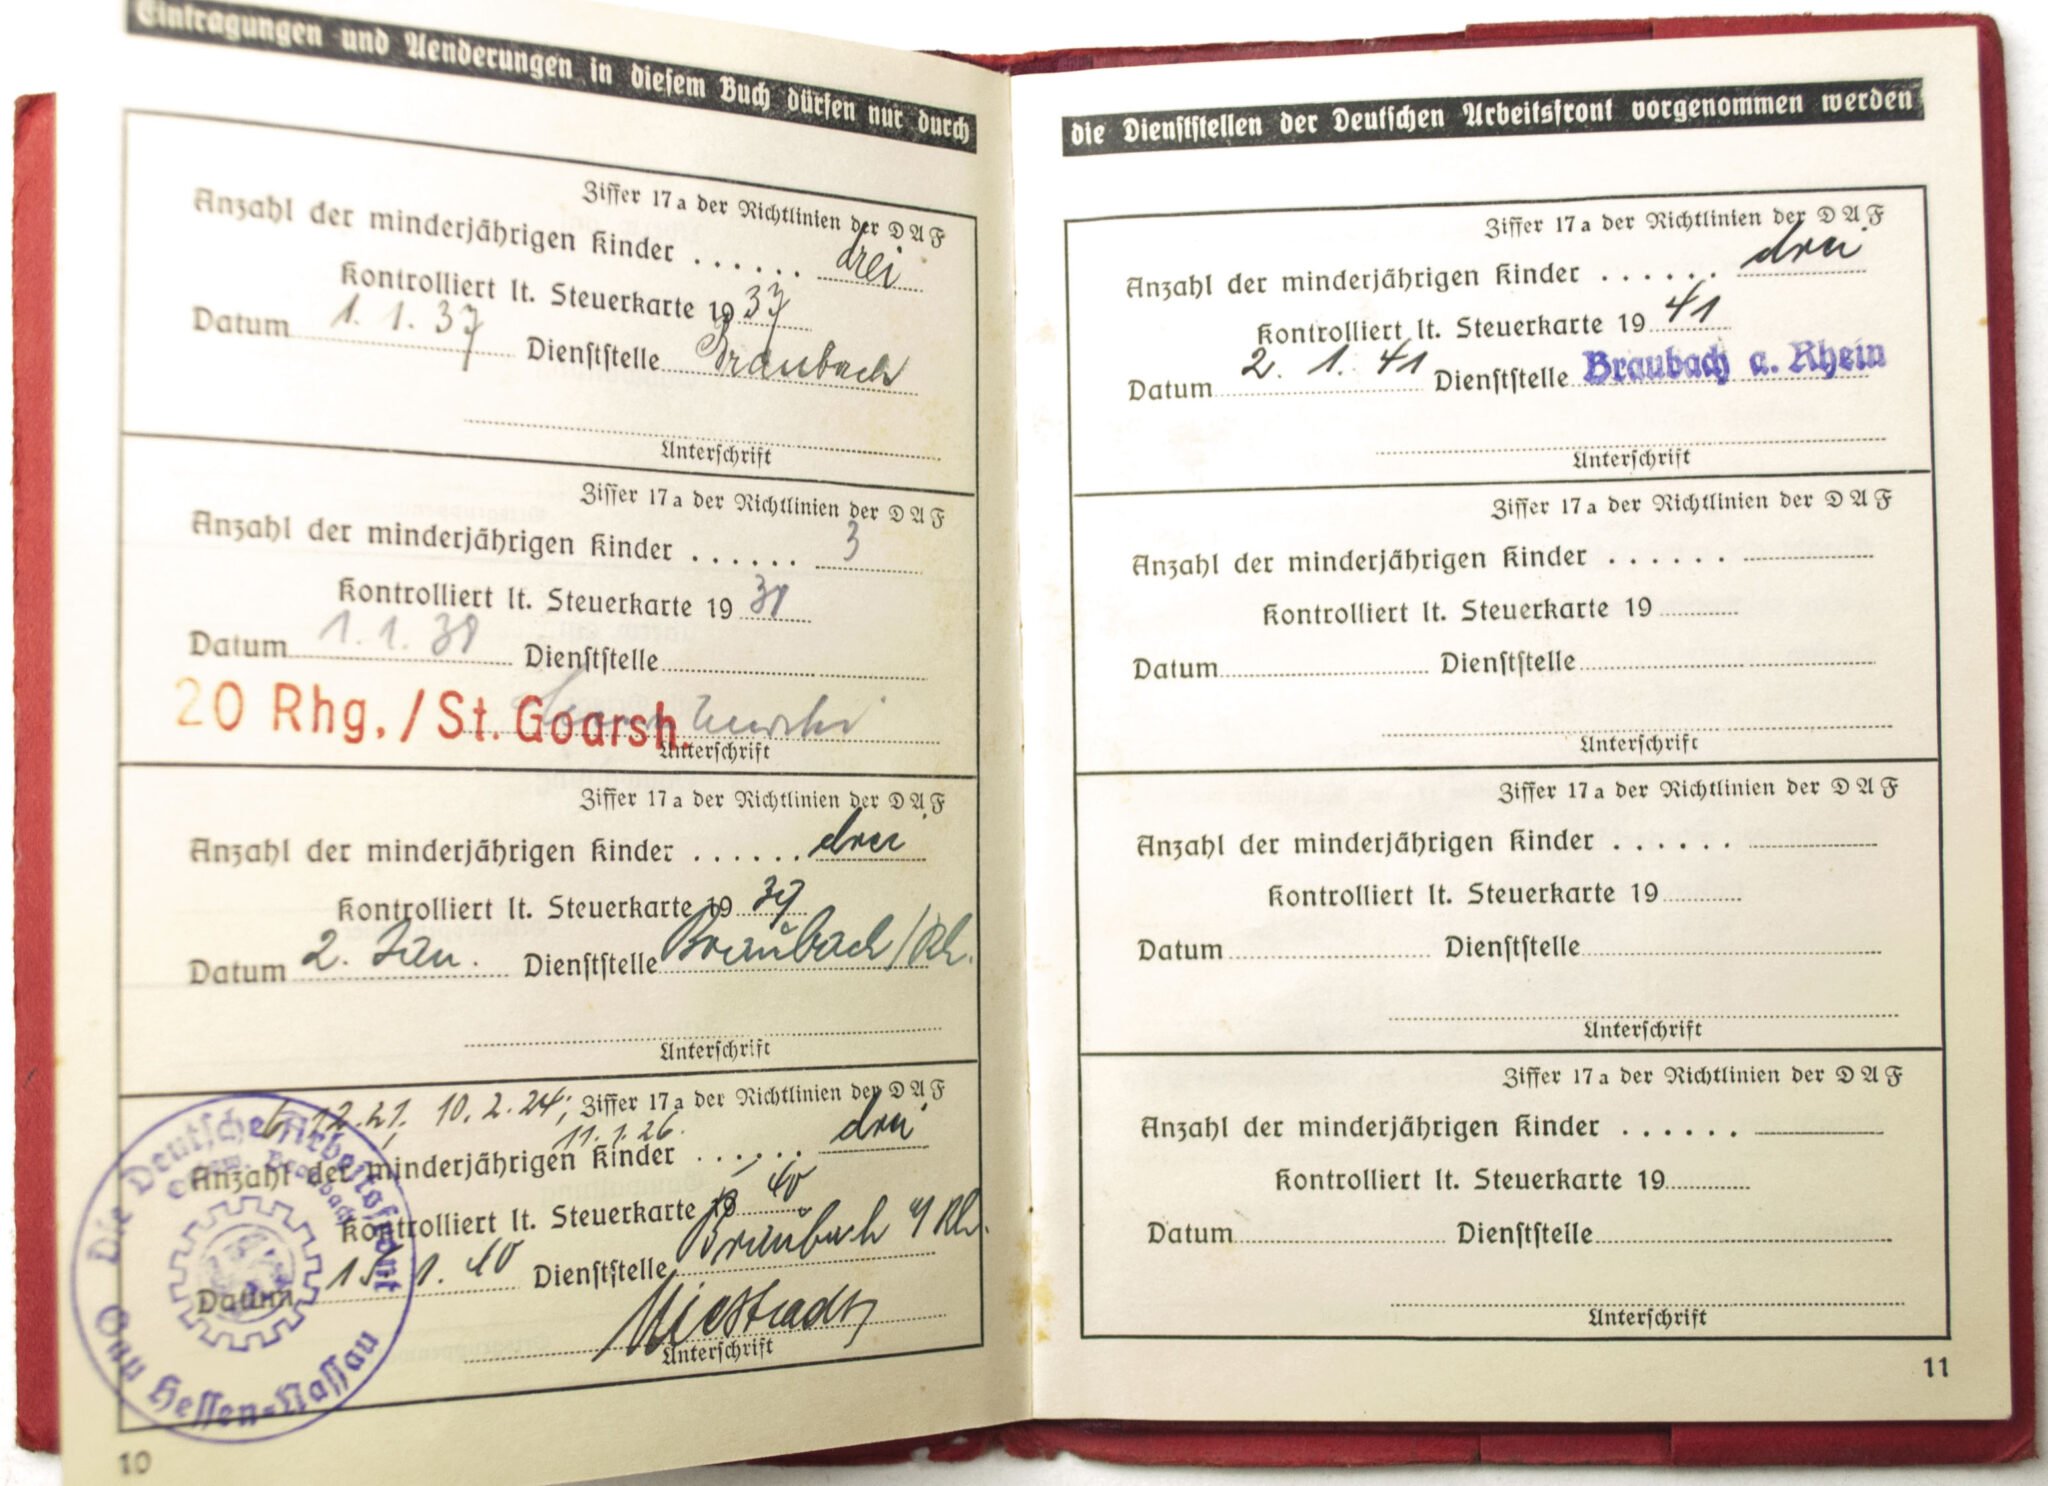 Eintragungen und Aenderungen in diesem Buch dürfen nur durch
Ziffer 17a der Richtlinien der DAF
Anzahl der minderjährigen Kinder . . . . . . drei
Kontrolliert lt. Steuerkarte 19 37
Datum 1. 1. 37 Dienststelle Braubach
Unterschrift
Ziffer 17a der Richtlinien der DAF
Anzahl der minderjährigen Kinder . . . . . . 3
Kontrolliert lt. Steuerkarte 19 38
Datum 1. 1. 38 Dienststelle
20 Rhg. / St. Goarsh.
Unterschrift
Ziffer 17a der Richtlinien der DAF
Anzahl der minderjährigen Kinder . . . . . . drei
Kontrolliert lt. Steuerkarte 19 39
Datum 2. Jan. Dienststelle Braubach/Rh.
Unterschrift
12.21, 10.2.24, Ziffer 17a der Richtlinien der DAF
11.1.26.
Anzahl der minderjährigen Kinder . . . . . . drei
Kontrolliert lt. Steuerkarte 19 40
Datum 1. 40 Dienststelle Braubach a/Rh.
Unterschrift
Die Deutsche Arbeitsfront
Braubach
Gau Hessen-Nassau
10
die Dienststellen der Deutschen Arbeitsfront vorgenommen werden
Ziffer 17a der Richtlinien der DAF
Anzahl der minderjährigen Kinder . . . . . . drei
Kontrolliert lt. Steuerkarte 19 41
Datum 2. 1. 41 Dienststelle Braubach a. Rhein
Unterschrift
Ziffer 17a der Richtlinien der DAF
Anzahl der minderjährigen Kinder . . . . . .
Kontrolliert lt. Steuerkarte 19
Datum Dienststelle
Unterschrift
Ziffer 17a der Richtlinien der DAF
Anzahl der minderjährigen Kinder . . . . . .
Kontrolliert lt. Steuerkarte 19
Datum Dienststelle
Unterschrift
Ziffer 17a der Richtlinien der DAF
Anzahl der minderjährigen Kinder . . . . . .
Kontrolliert lt. Steuerkarte 19
Datum Dienststelle
Unterschrift
11